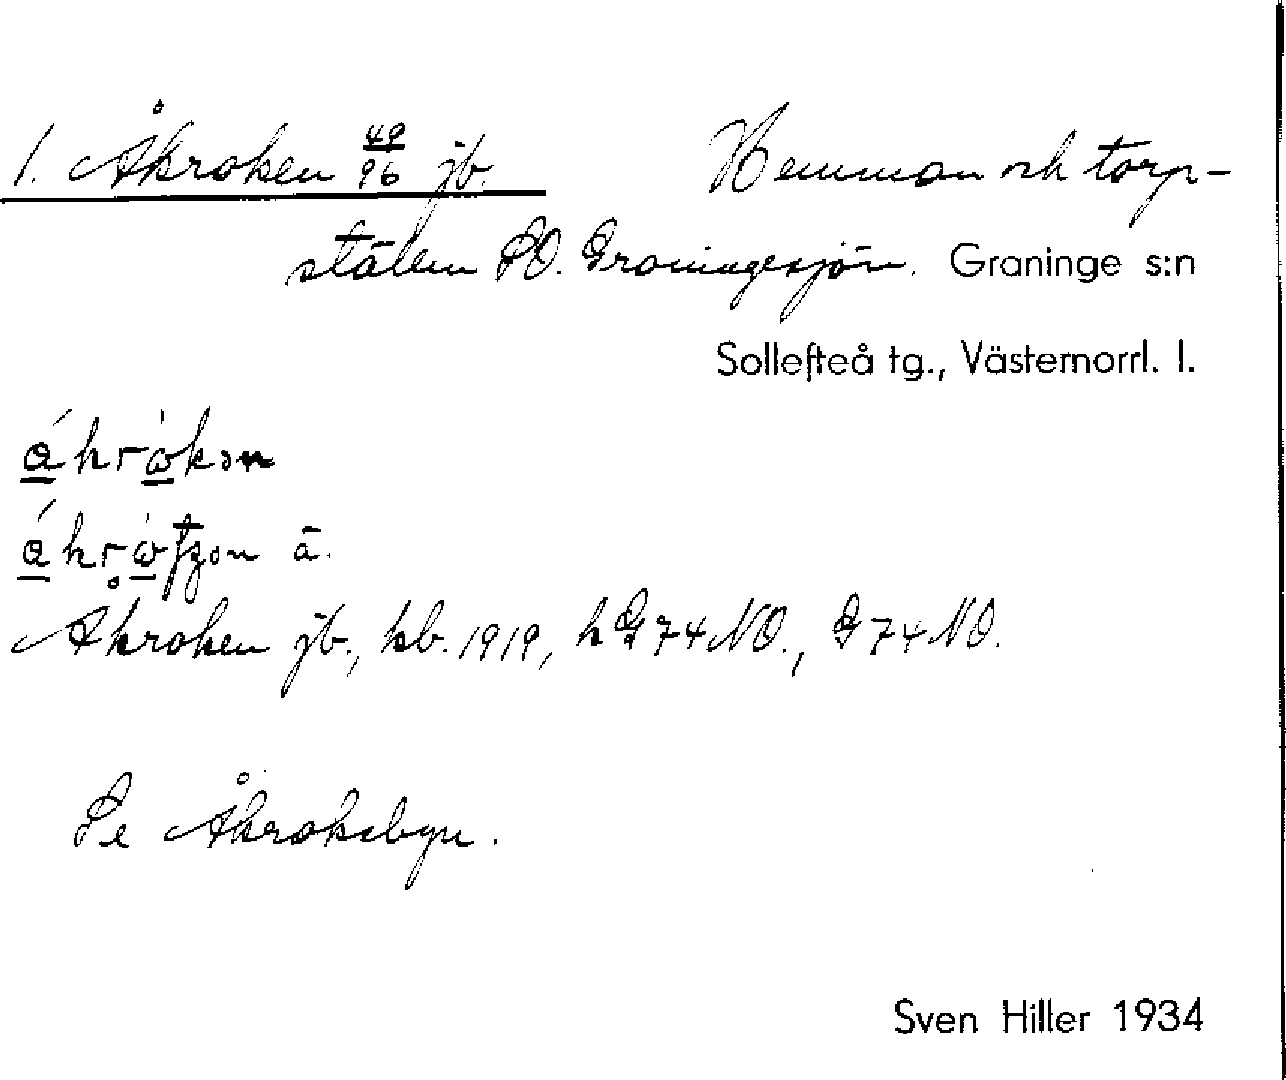 1. Åkroken 49/96 jb. Hemman och torp-
ställen SO. Graningesjön. Graninge s:n
Sollefteå tg., Västernorrl. l.
ä.
Åkroken jb., kb. 1919, h G 74 NO., G 74 NO.
Se Åkroksbyn.
Sven Hiller 1934